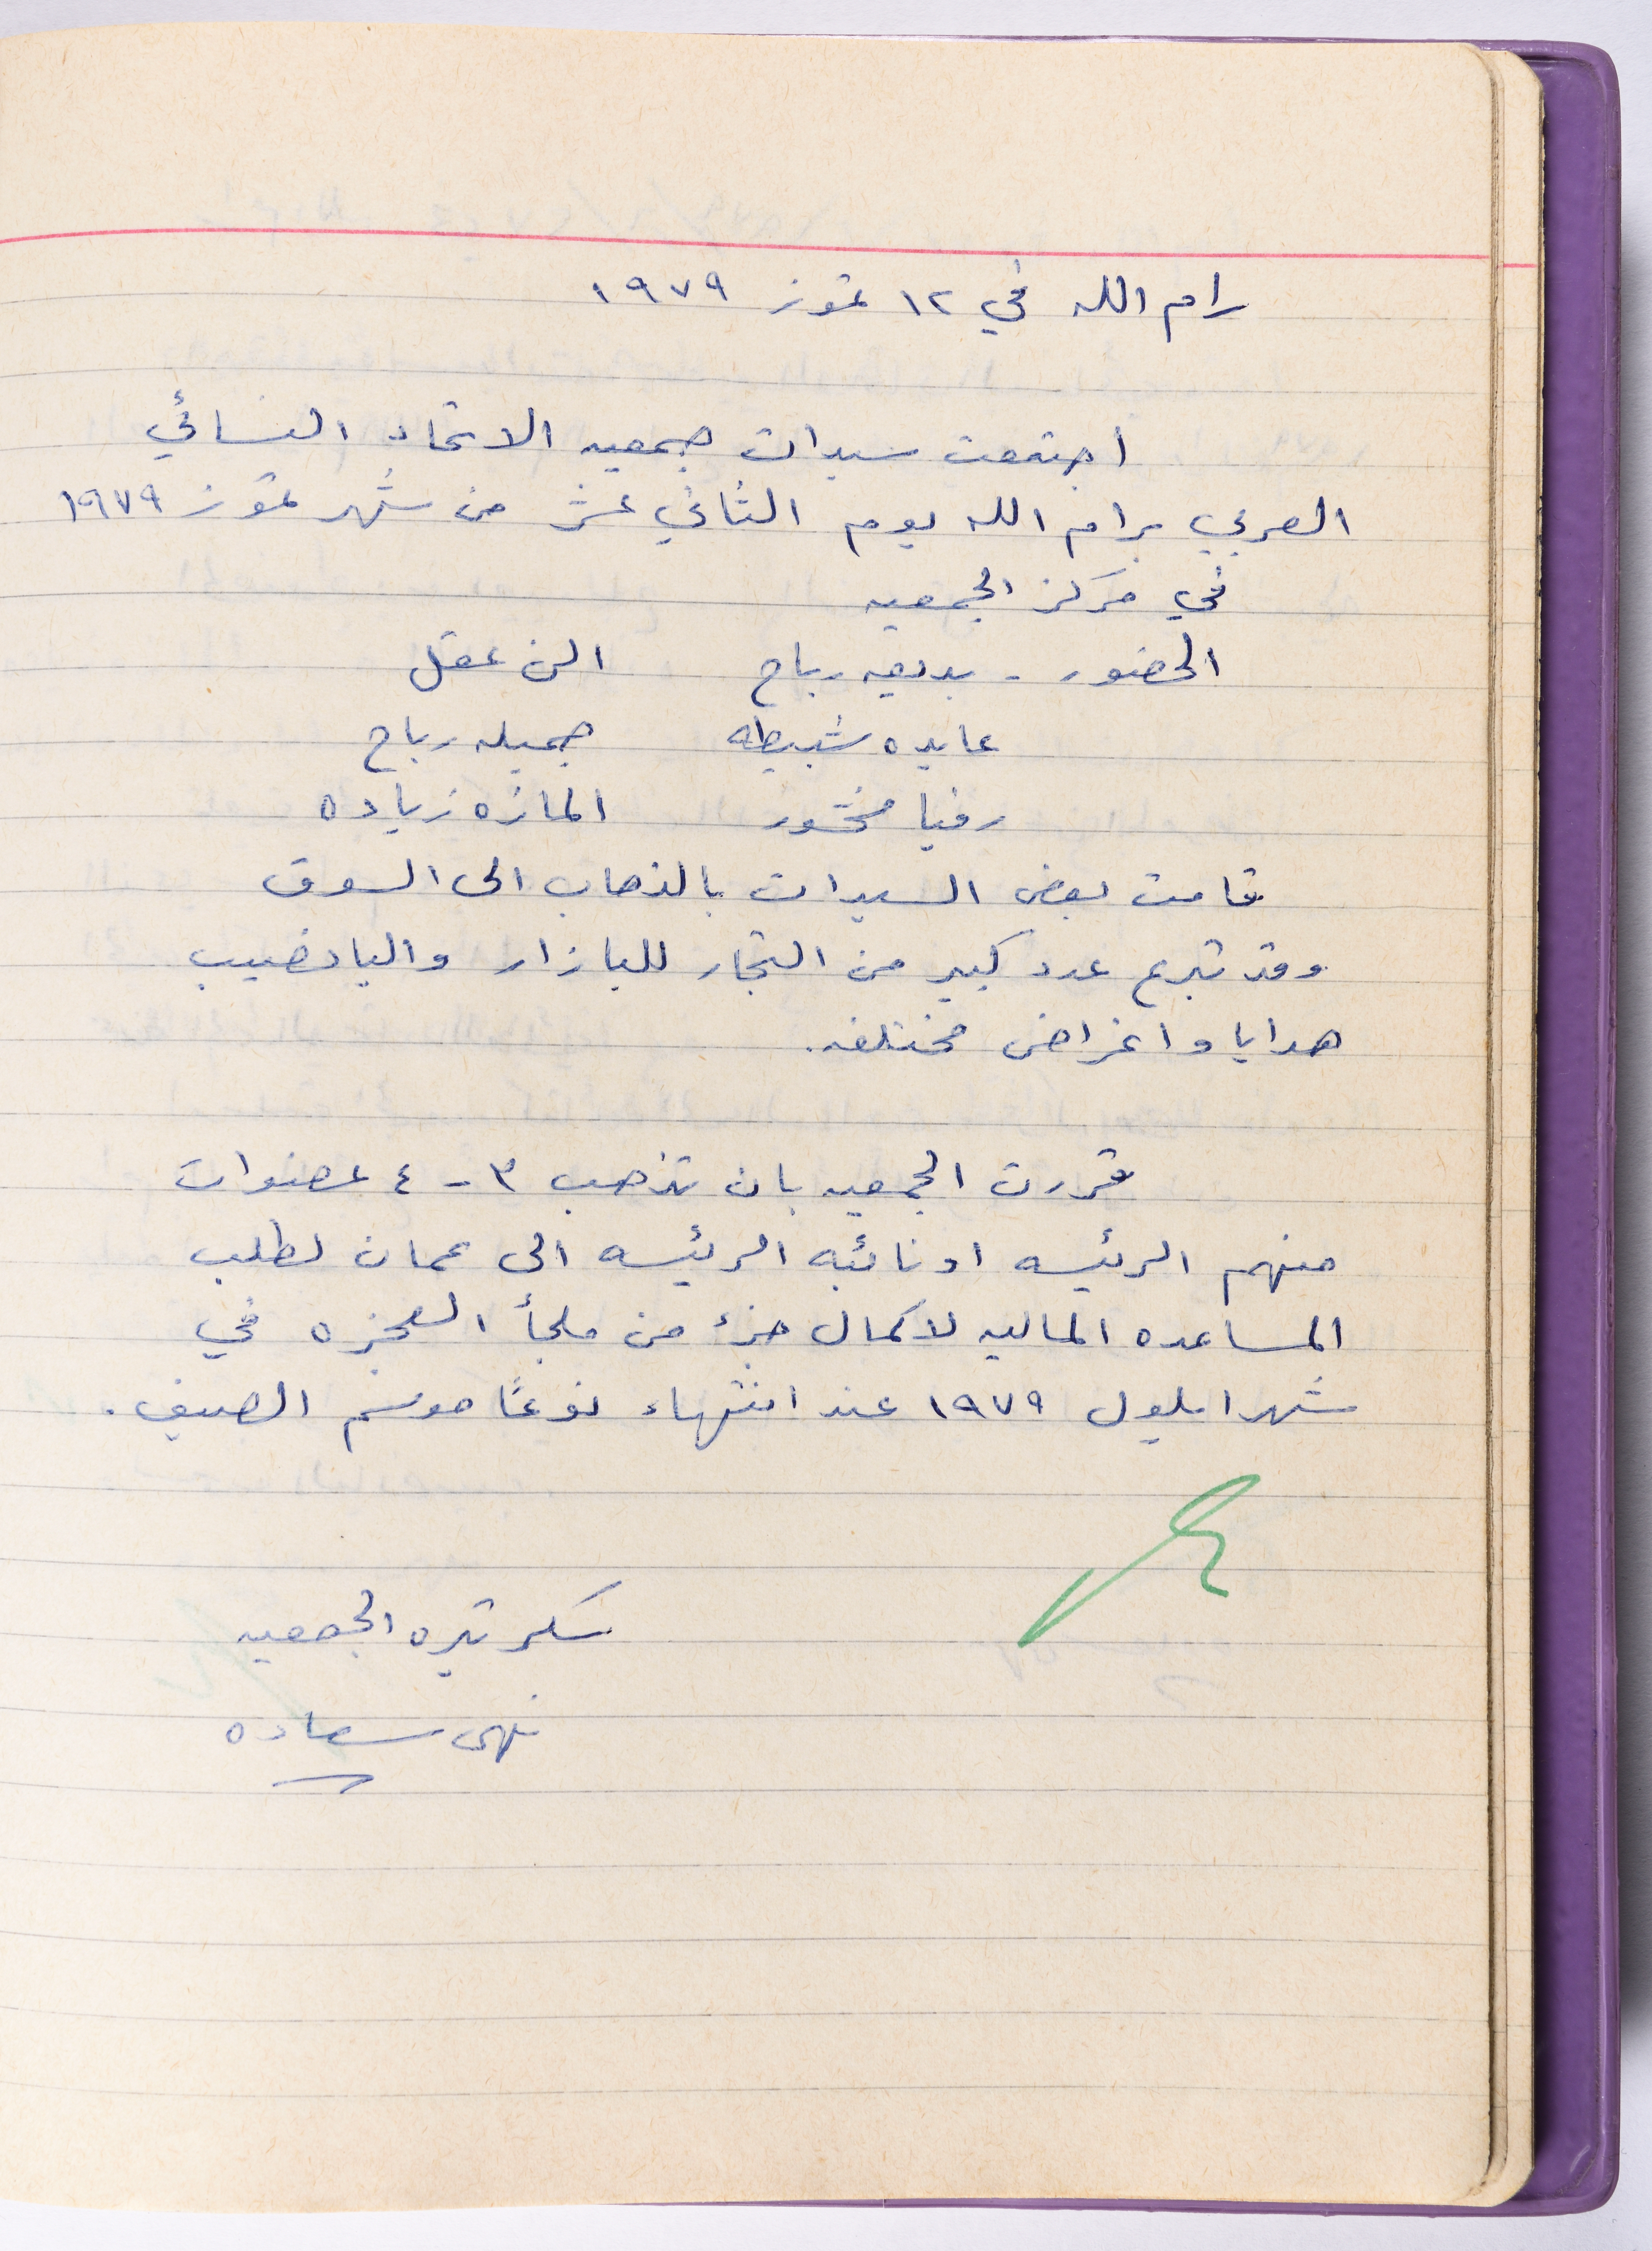 رام الله في ١٢ تموز ١٩٧٩
اجتمعت سيدات جمعيه الاتحاد النسائي
العربي برام الله يوم الثاني عشر من شهر تموز ١٩٧٩
في مركز الجمعيه
الحضور - بديعه رباح الن عقل
عايده شبيطه جميله رباح
رفيا منصور المازه زياده
قامت بعض السيدات بالذهاب الى السوق
وقد تبرع عدد كبير من التجار للبازار واليانصيب
هدايا واغراض مختلفه.
قررت الجمعيه بان تذهب ٣ - ٤ عضوات
منهم الرئيسه او نائبه الرئيسه الى عمان لطلب
المساعده الماليه لاكمال جزء من ملجأ العجزه في
شهر ايلول ١٩٧٩ عند انتهاء نوعًا موسم الصيف.
سكرتيره الجمعيه
نهى سعاده